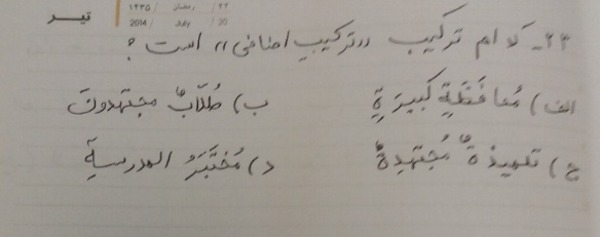 تیر
۱۴۳۵ / رمضان / ۲۲
2014 / July / 20
۲۳- کدام ترکیب ,,ترکیبِ اضافی,, است ؟
الف) مُحافَظَةٍ کَبیرَةٍ ب) طُلّابٌ مجتهدونَ
ج) تلمیذةٌ مُجتَهِدةٌ د) مُختَبَرُ المدرسةِ